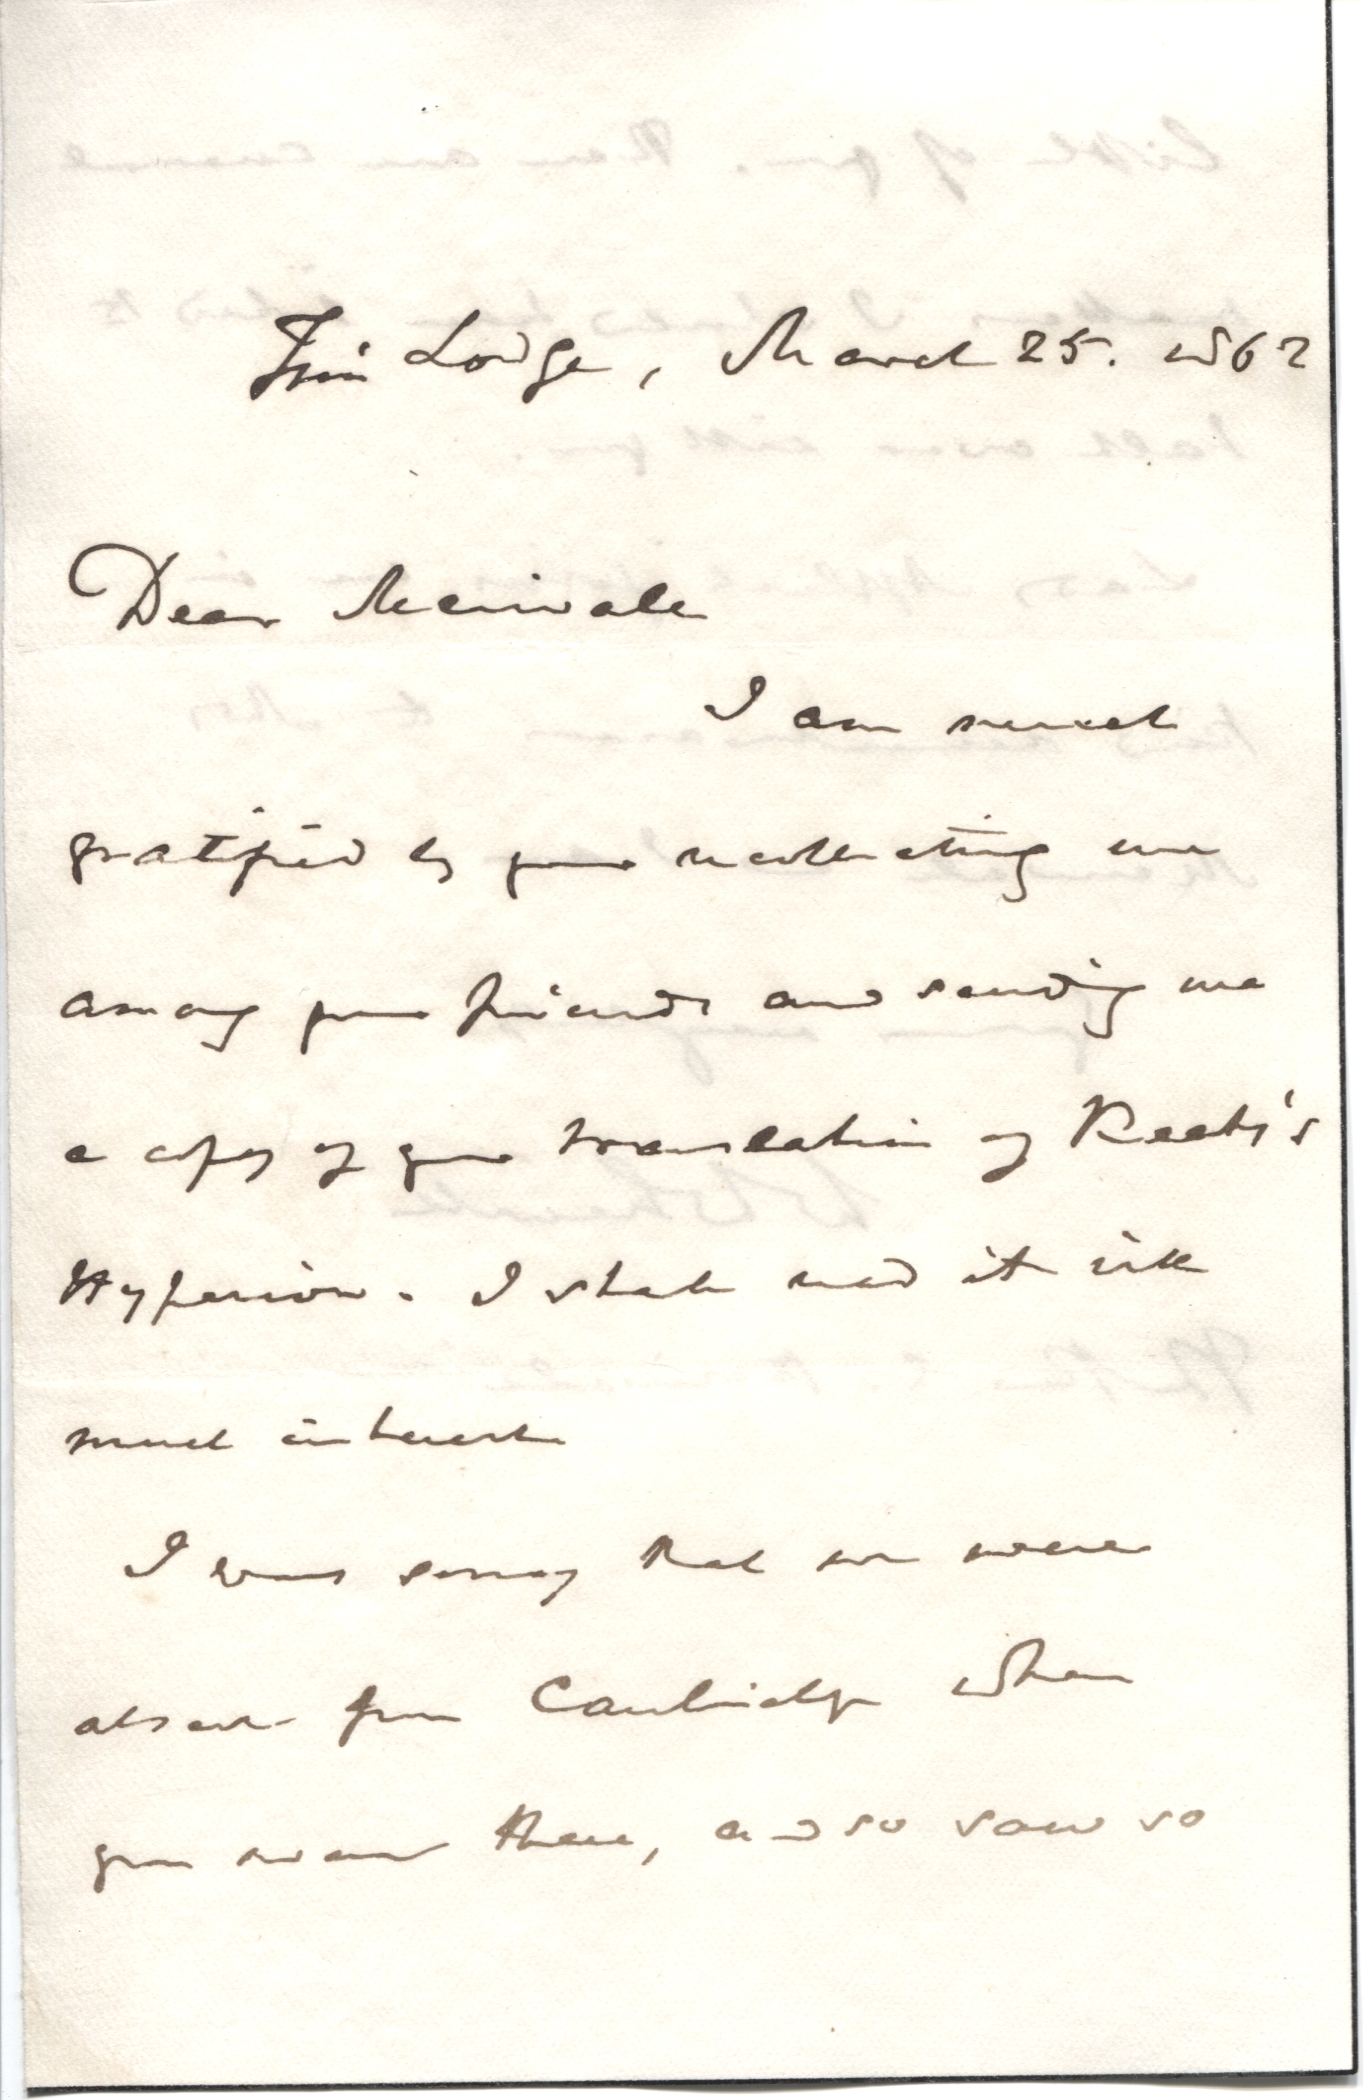 Trin Lodge, March 25. 1862
Dear Merivale
I am much
gratified by your recollecting me
among your friends and sending me
a copy of your translation of Keats's
Hyperion. I shall read it with
much interest
I was sorry that we were
absent from Cambridge when
you were there, and so saw so